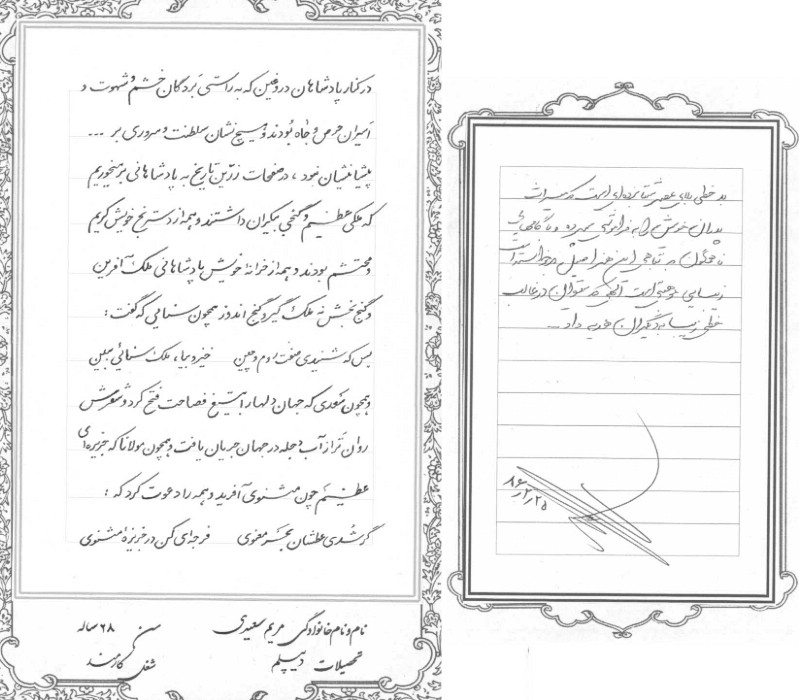 در کنار پادشاهان دروغین که به راستی بردگان خشم و شهوت و
اسیران حرص و جاه بودند و هیچ نشان سلطنت و سروری بر ...
پیشانیشان نبود، در صفحات زرّین تاریخ به پادشاهانی برمیخوریم
که ملکی عظیم و گنجی بیکران داشتند و همه از دسترنج خویش کریم
و محتشم بودند و همه از خزانه خویش پادشاهانی ملک آفرین
و گنج بخش نه ملک گیر و گنج اندوز همچون سنایی که گفت:
بس که شنیدی صفت روم و چین خیز و بیا، ملک سنائی ببین
و همچون سعدی که جهان دلها را به تیغ فصاحت فتح کرد و شعرش
روان تر از آب دجله در جهان جریان یافت و همچون مولانا که جزیره‌ای
عظیم چون مثنوی آفرید و همه را دعوت کرد که:
گر شدی عطشان بحر معنوی فرجه‌ای کن در جزیرهٔ مثنوی
نام و نام خانوادگی مریم سعیدی سن ۲۸ ساله
تحصیلات دیپلم شغل کارمند
بد خطی بلای عصر شتابزده‌ای است که میراث
پدران خویش را به فراموشی سپرده و نگاههای
این هنر اصیل
زیبایی است الهی که میتوان در قالب
خطی زیبا به دیگران هدیه داد...
۸۶/۲/۲۵